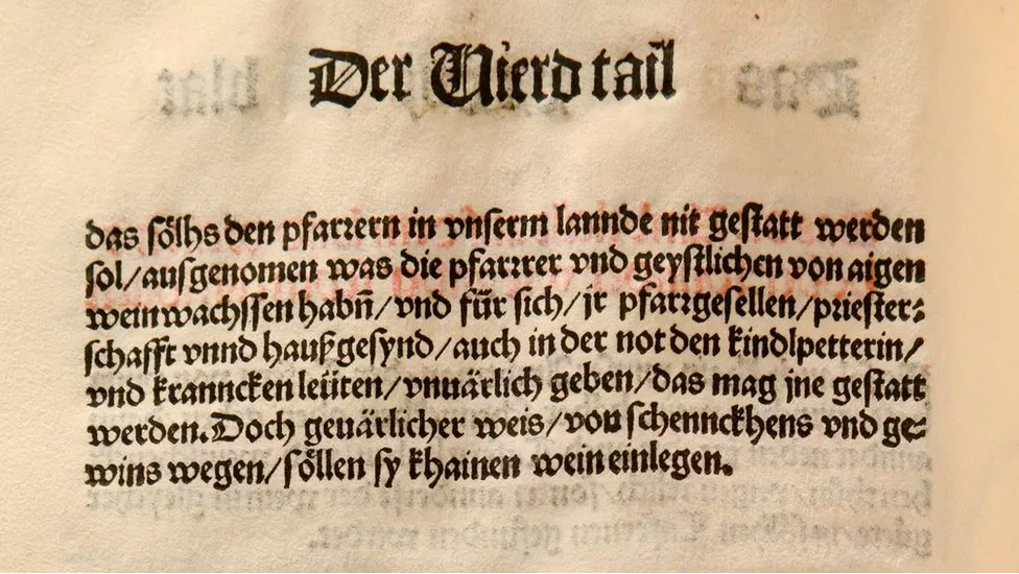 Der Vierd tail
das sölhs den pfarrern in vnserm lannde nit gestatt werden
sol/ausgenomen was die pfarrer vnd geystlichen von aigen
weinwachssen habn̄/vnd für sich/jr pfarrgesellen/priester⸗
schafft vnnd haußgesynd/auch in der not den kindlpetterin/
vnd kranncken leüten/vnuärlich geben/das mag jne gestatt
werden. Doch geuärlicher weis/von schennckhens vnd ge⸗
wins wegen/söllen sy khainen wein einlegen.